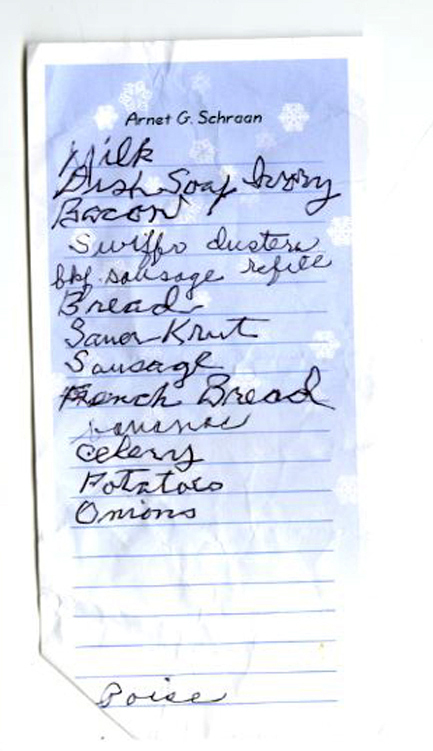 Arnet G. Schraan
Milk
Dish Soap Ivory
Bacon
Swiffr dusters
bkf. sausage refill
Bread
Sauer Krut
Sausage
French Bread
bananas
celery
Potatoes
Onions
Poise